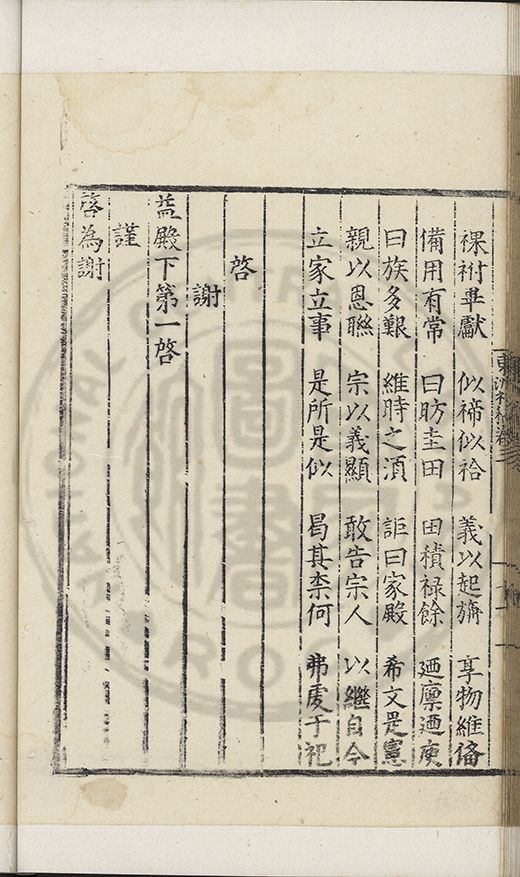 祼祔毋獻　似禘似祫　義以起旃　享物維俻
備用有常　曰昉圭田　田積禄餘　廼廪廼庾
曰族多艱　維時之湏　詎曰家殿　希文是憲
親以恩聮　宗以義顯　敢告宗人　以繼自今
立家立事　是所是似　曷其柰何　弗虔于祀
啓
謝
益殿下第一啓
謹
啓為謝